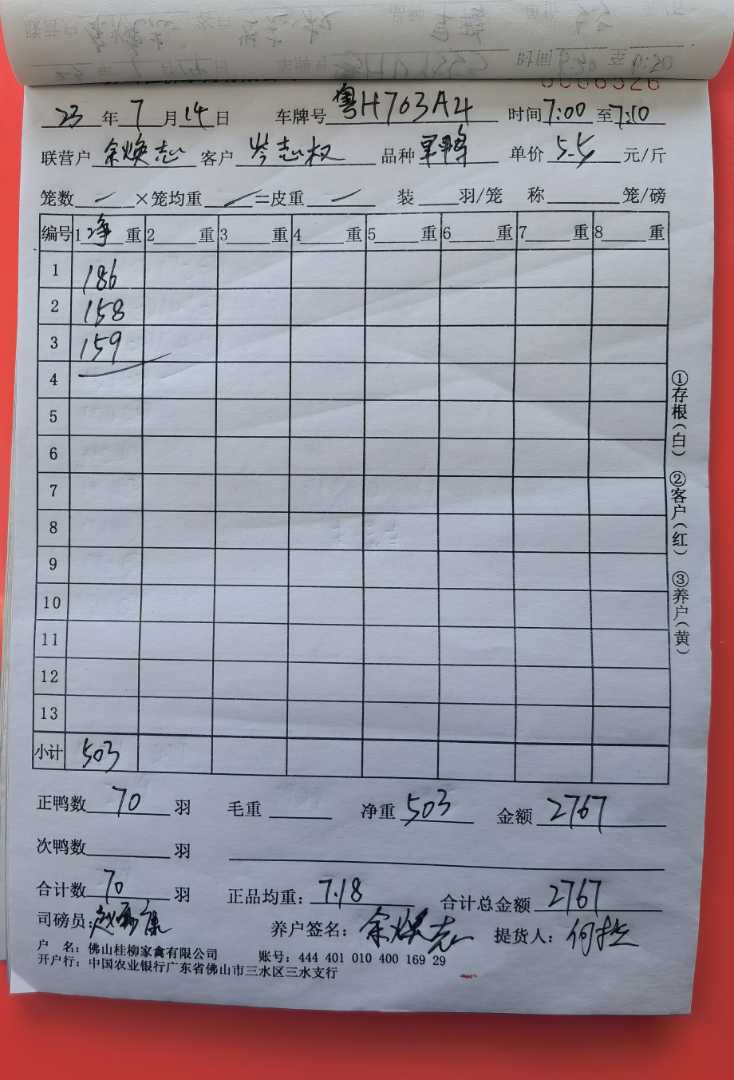 23 年 7 月 14 日 车牌号 粤H703A4 时间 7:00 至 7:10
联营户 余焕志 客户 岑志权 品种 单价 5.5 元/斤
笼数 ×笼均重 =皮重 装 羽/笼 称 笼/磅
编号 1 净 重 2 重 3 重 4 重 5 重 6 重 7 重 8 重
1 186
2 158
3 159
4
5
6
7
8
9
10
11
12
13
小计 503
①存根(白) ②客户(红) ③养户(黄)
正鸭数 70 羽 毛重 净重 503 金额 2767
次鸭数 羽
合计数 70 羽 正品均重: 7.18 合计总金额 2767
司磅员: 养户签名: 余焕志 提货人:
户 名: 佛山桂柳家禽有限公司 账号: 444 401 010 400 169 29
开户行: 中国农业银行广东省佛山市三水区三水支行